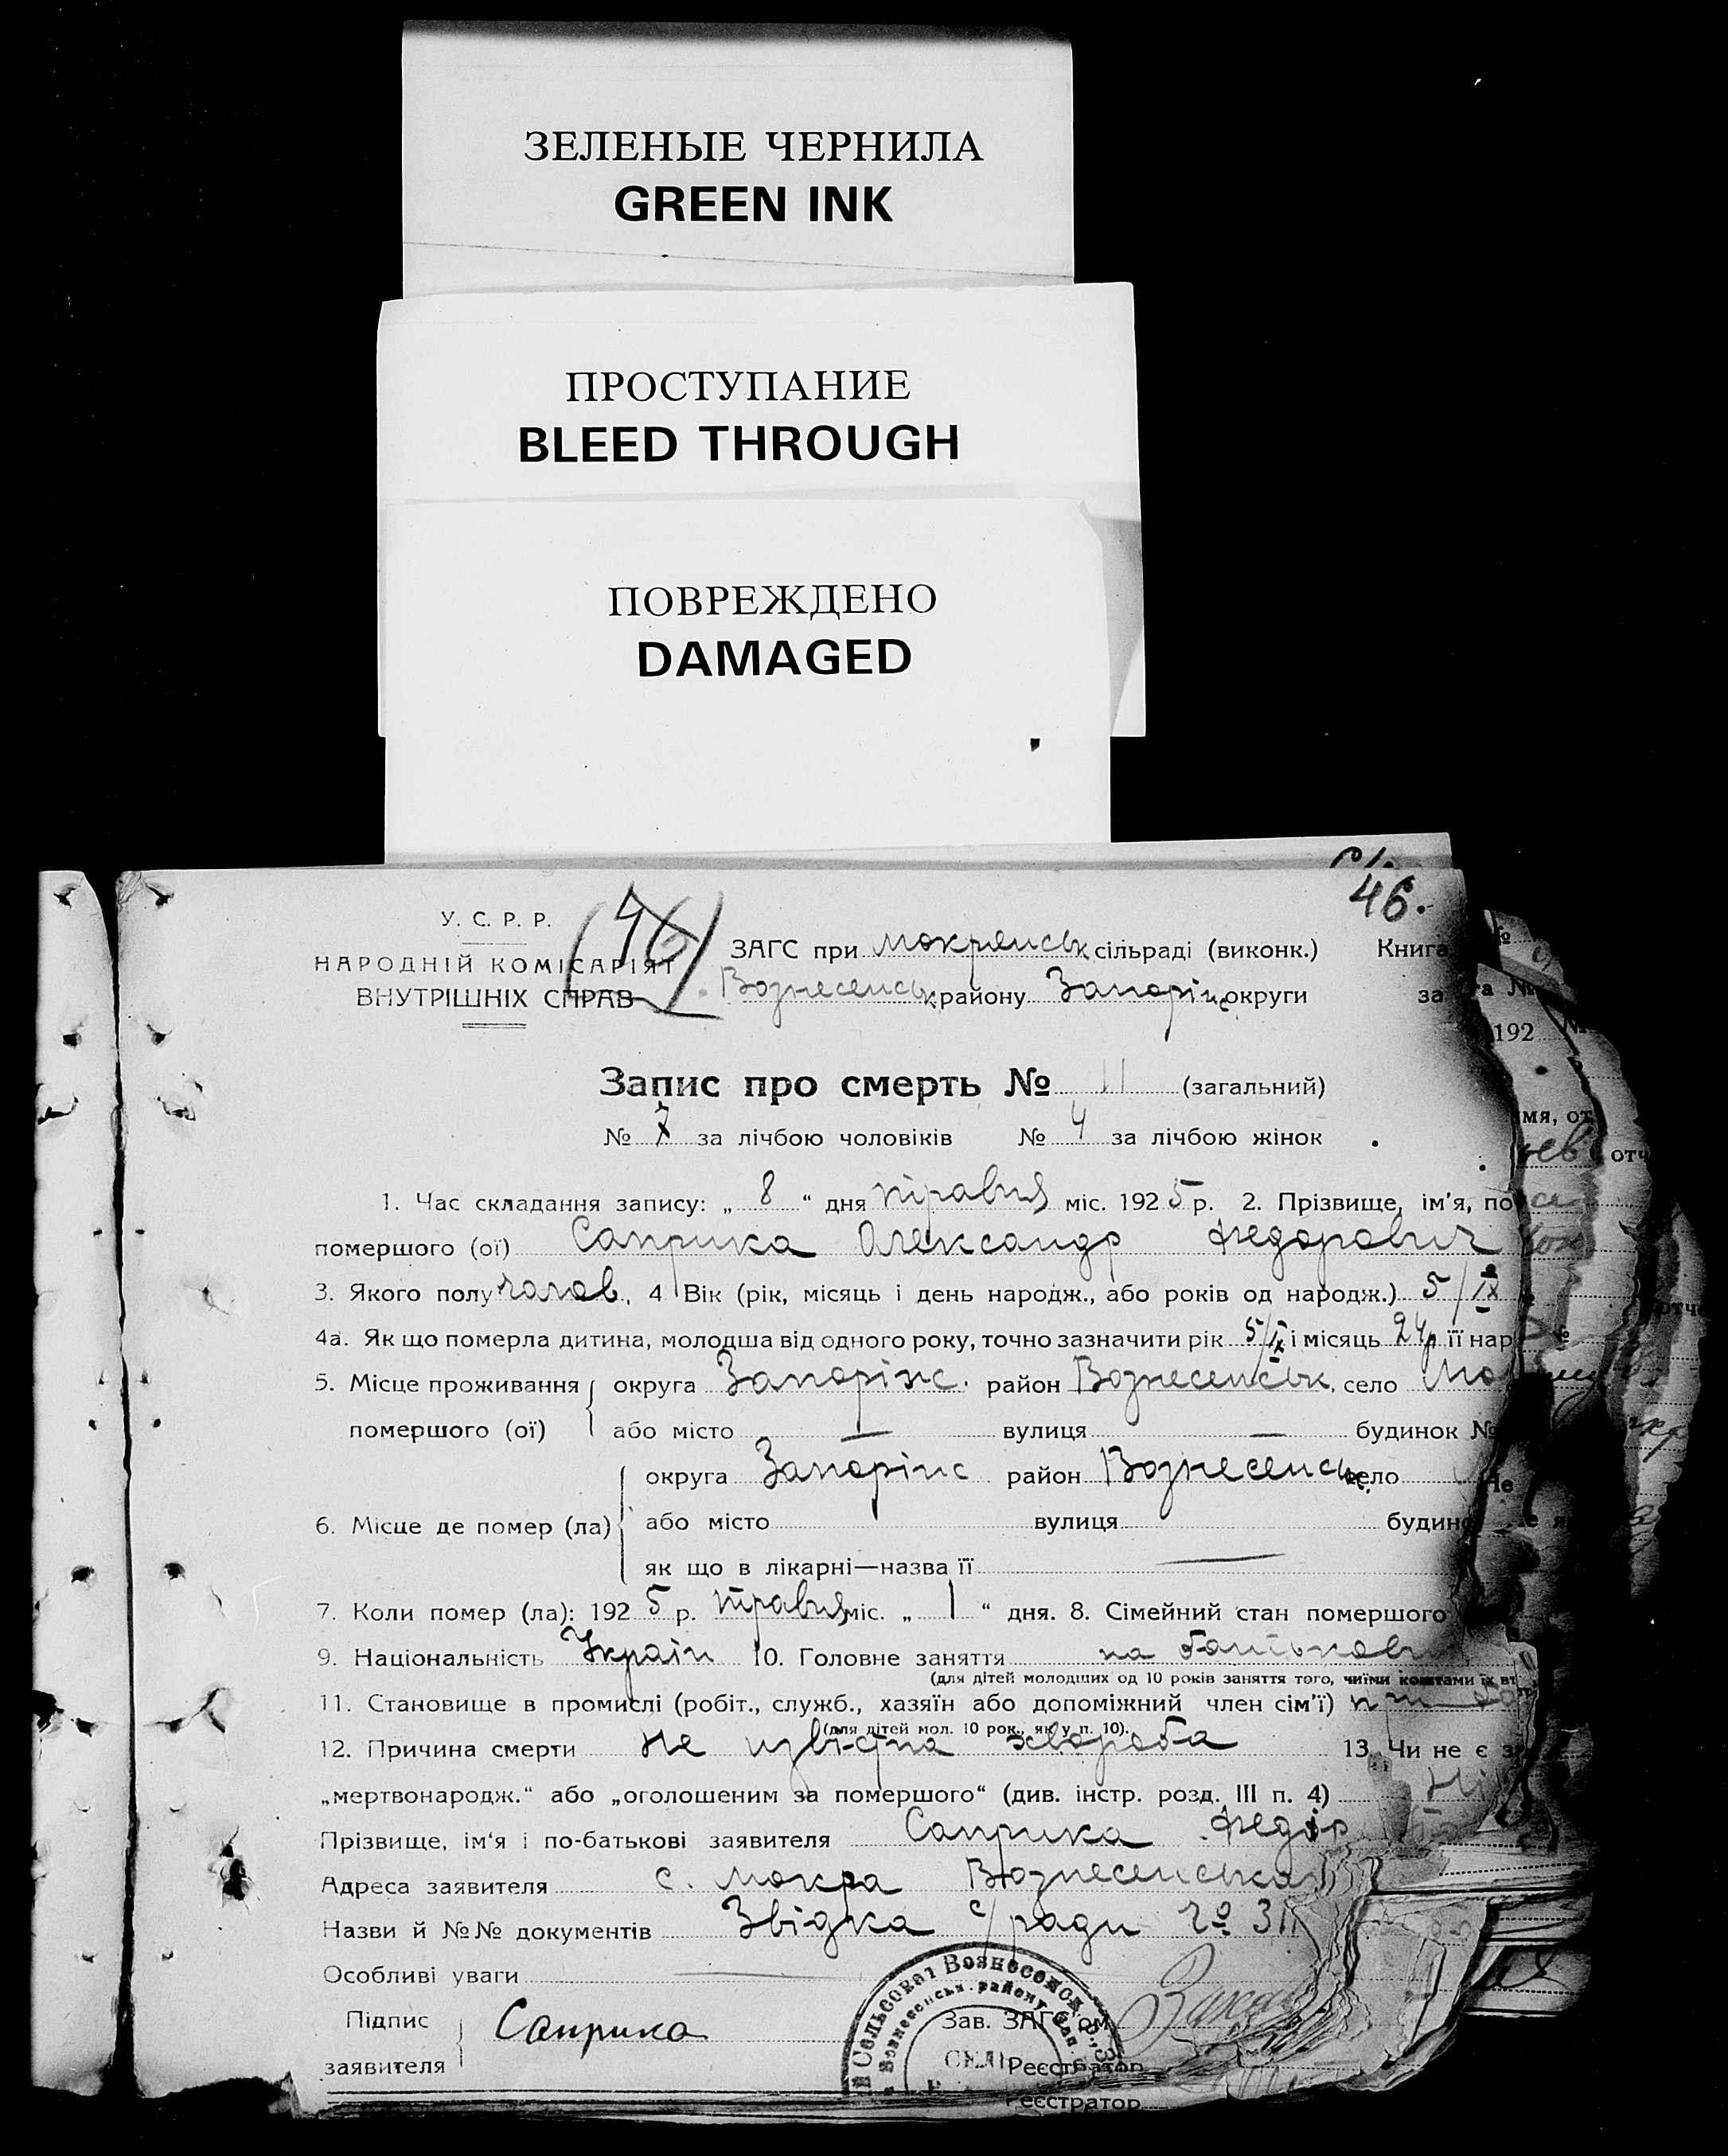 ЗЕЛЕНЫЕ ЧЕРНИЛА
GREEN INK
ПРОСТУПАНИЕ
BLEED THROUGH
ПОВРЕЖДЕНО
DAMAGED
46.
У. С. Р. Р.
НАРОДНІЙ КОМІСАРІЯТ
ВНУТРІШНІХ СПРАВ
46
ЗАГС при Мокрянськ сільраді (виконк.) Книга №
Вознесенськ району Запоріж округи за
192
Запис про смерть № 11 (загальний)
№ 7 за лічбою чоловіків № 4 за лічбою жінок
1. Час складання запису: „ 8 “ дня травня міс. 1925 р. 2. Прізвище, ім'я, по
помершого (ої) Саприка Олександр Федорович
3. Якого полу чолов. 4 Вік (рік, місяць і день народж., або років од народж.) 5/IX
4а. Як що померла дитина, молодша від одного року, точно зазначити рік 5/IX і місяць 24р її нар
5. Місце проживання округа Запоріж. район Вознесенськ. село Мо
помершого (ої) або місто — вулиця — будинок №
округа Запоріж район Вознесенськ село
6. Місце де помер (ла) або місто вулиця будин
як що в лікарні—назва її —
7. Коли помер (ла): 1925 р. травня міс. „ 1 “ дня. 8. Сімейний стан помершого
9. Національність Україн 10. Головне заняття на батьков
(для дітей молодших од 10 років заняття того, чиїми коштами їх
11. Становище в промислі (робіт., служб., хазяїн або допоміжний член сім'ї) при
(для дітей мол. 10 рок., як у п. 10).
12. Причина смерти Не ізвісна хвороба 13. Чи не є
„мертвонародж.“ або „оголошеним за помершого“ (див. інстр. розд. III п. 4) Ні
Прізвище, ім'я і по-батькові заявителя Саприка Федір
Адреса заявителя с. Мокра Вознесенська
Назви й №№ документів Звідка с/ради
Особливі уваги
Підпис Саприка Зав. ЗАГС'ом
заявителя Реєстратор
Реєстратор